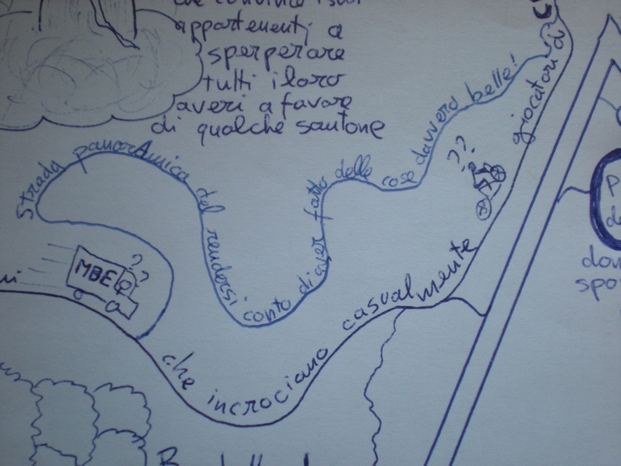 suoi
appartenenti a
sperperare
tutti i loro
averi a favore
di qualche santone
Strada panoramica del rendersi conto di aver fatto delle cose davvero belle!
??
giocatori di
MBE
??
che incrociano casualmente